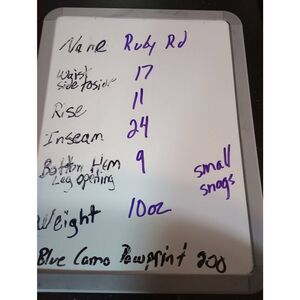 Name Ruby Rd
Waist 17
side to side
Rise 11
Inseam 24
Bottom Hem 9
Leg opening
small
snags
Weight 10oz
Blue Camo Pawprint 200